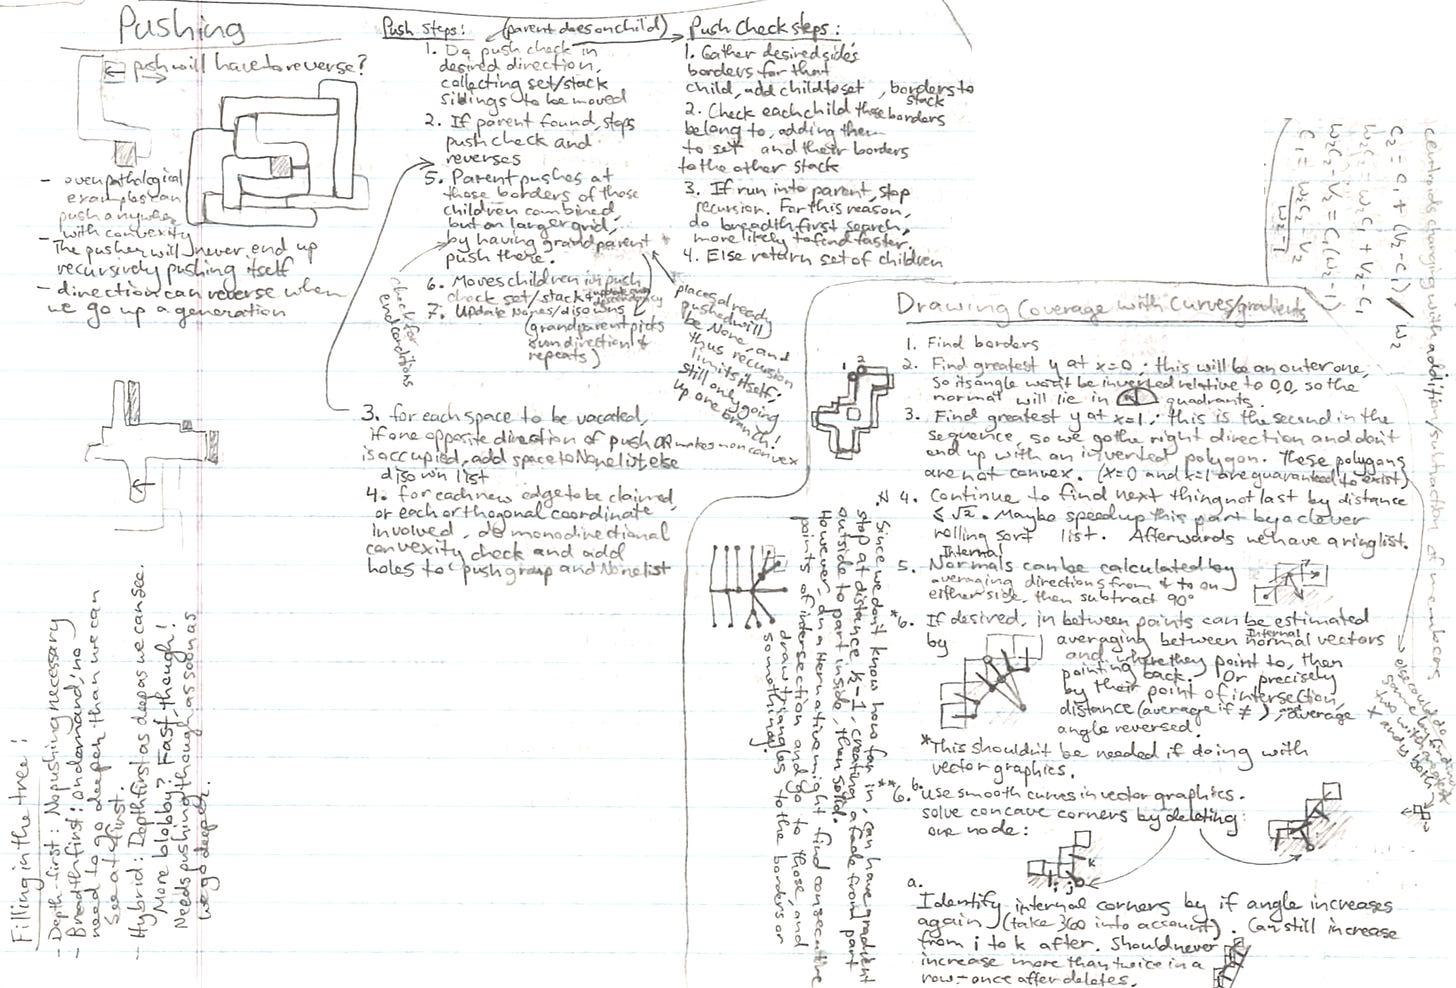 Pushing
push will have to reverse?
- even pathological
examples can
push anywhere
with convexity
- The pusher will never end up
recursively pushing itself
- direction can reverse when
we go up a generation
Push steps:
(parent does on child)
1. Do push check in
desired direction,
collecting set/stack
siblings to be moved
2. If parent found, stops
push check and
reverses
5. Parent pushes at
those borders of those
children combined,
but on larger grid,
by having grandparent
push there.
6. Moves children in push
check set/stack +
7. Update Nones/disowns
(grandparent picks
own direction &
repeats)
check for
end conditions
places already
pushed will
be None, and
thus recursion
limits itself,
still only going
up one branch!
3. for each space to be vacated,
if one opposite direction of push OR makes nonconvex
is occupied, add space to None list else
disown list
4. for each new edge to be claimed
or each orthogonal coordinate
involved, do monodirectional
convexity check and add
holes to push group and None list
Push Check steps:
1. Gather desired side's
borders for that
child, add child to set, borders to
stack
2. Check each child those borders
belong to, adding them
to set and their borders
to the other stack
3. If run into parent, stop
recursion. For this reason,
do breadth first search,
more likely to find faster.
4. Else return set of children
Filling in the tree!
- Depth-first: No pushing necessary
- Breadth first: on demand, no
need to go deeper than we can
see at first.
- Hybrid: Depth first as deep as we can see.
More blobby? Fast though!
Needs pushing though as soon as
we go deeper.
centroids changing with addition/subtraction of members
c₂ = c₁ + (v₂ - c₁) / w₂
w₂c₂ = w₂c₁ + v₂ - c₁
w₂c₂ - v₂ = c₁(w₂ - 1)
c₁ = w₂c₂ - v₂
w₂ - 1
Drawing Coverage with Curves/gradients
1. Find borders
2. Find greatest y at x=0; this will be an outer one,
so its angle won't be inverted relative to 0,0, so the
normal will lie in quadrants.
3. Find greatest y at x=1; this is the second in the
sequence, so we go the right direction and don't
end up with an inverted polygon. These polygons
are not convex. (x=0 and x=1 are guaranteed to exist)
4. Continue to find next thing not last by distance
≤ √2. Maybe speed up this part by a clever
rolling sort list. Afterwards we have a ring list.
Internal
5. Normals can be calculated by
averaging directions from & to on
either side, then subtract 90°
*6. If desired, in between points can be estimated
by averaging between Internal normal vectors
and where they point to, then
pointing back. Or precisely
by their point of intersection,
distance (average if ≠), and average
angle reversed.
*This shouldn't be needed if doing with
vector graphics.
b.
**6. Use smooth curves in vector graphics.
solve concave corners by deleting
one node:
i j
a.
Identify internal corners by if angle increases
again (take 360 into account). Can still increase
from j to k after. Should never
increase more than twice in a
row - once after deletes.
Since we don't know how far in, can have gradient
stop at distance k-1, creating a fade from part
outside to part inside, then solid.
However, an alternative might find consecutive
points of intersection and go to those, and
draw triangles to the borders or
something!
else could do
same by finding
two with greatest
x and y both